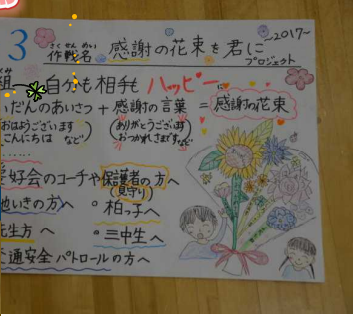 さくせんめい
3 作戦名 感謝の花束を君に ～2017～
プロジェクト
くみ
組 自分も相手もハッピーに
いだんのあいさつ + 感謝の言葉 = 感謝の花束
(おはようございます こんにちは など) (ありがとうございます おつかれさまです など)
......
愛好会のコーチや保護者の方へ
(見守り)
地いきの方へ 。柏っ子へ
先生方へ 。三中生へ
交通安全パトロールの方へ